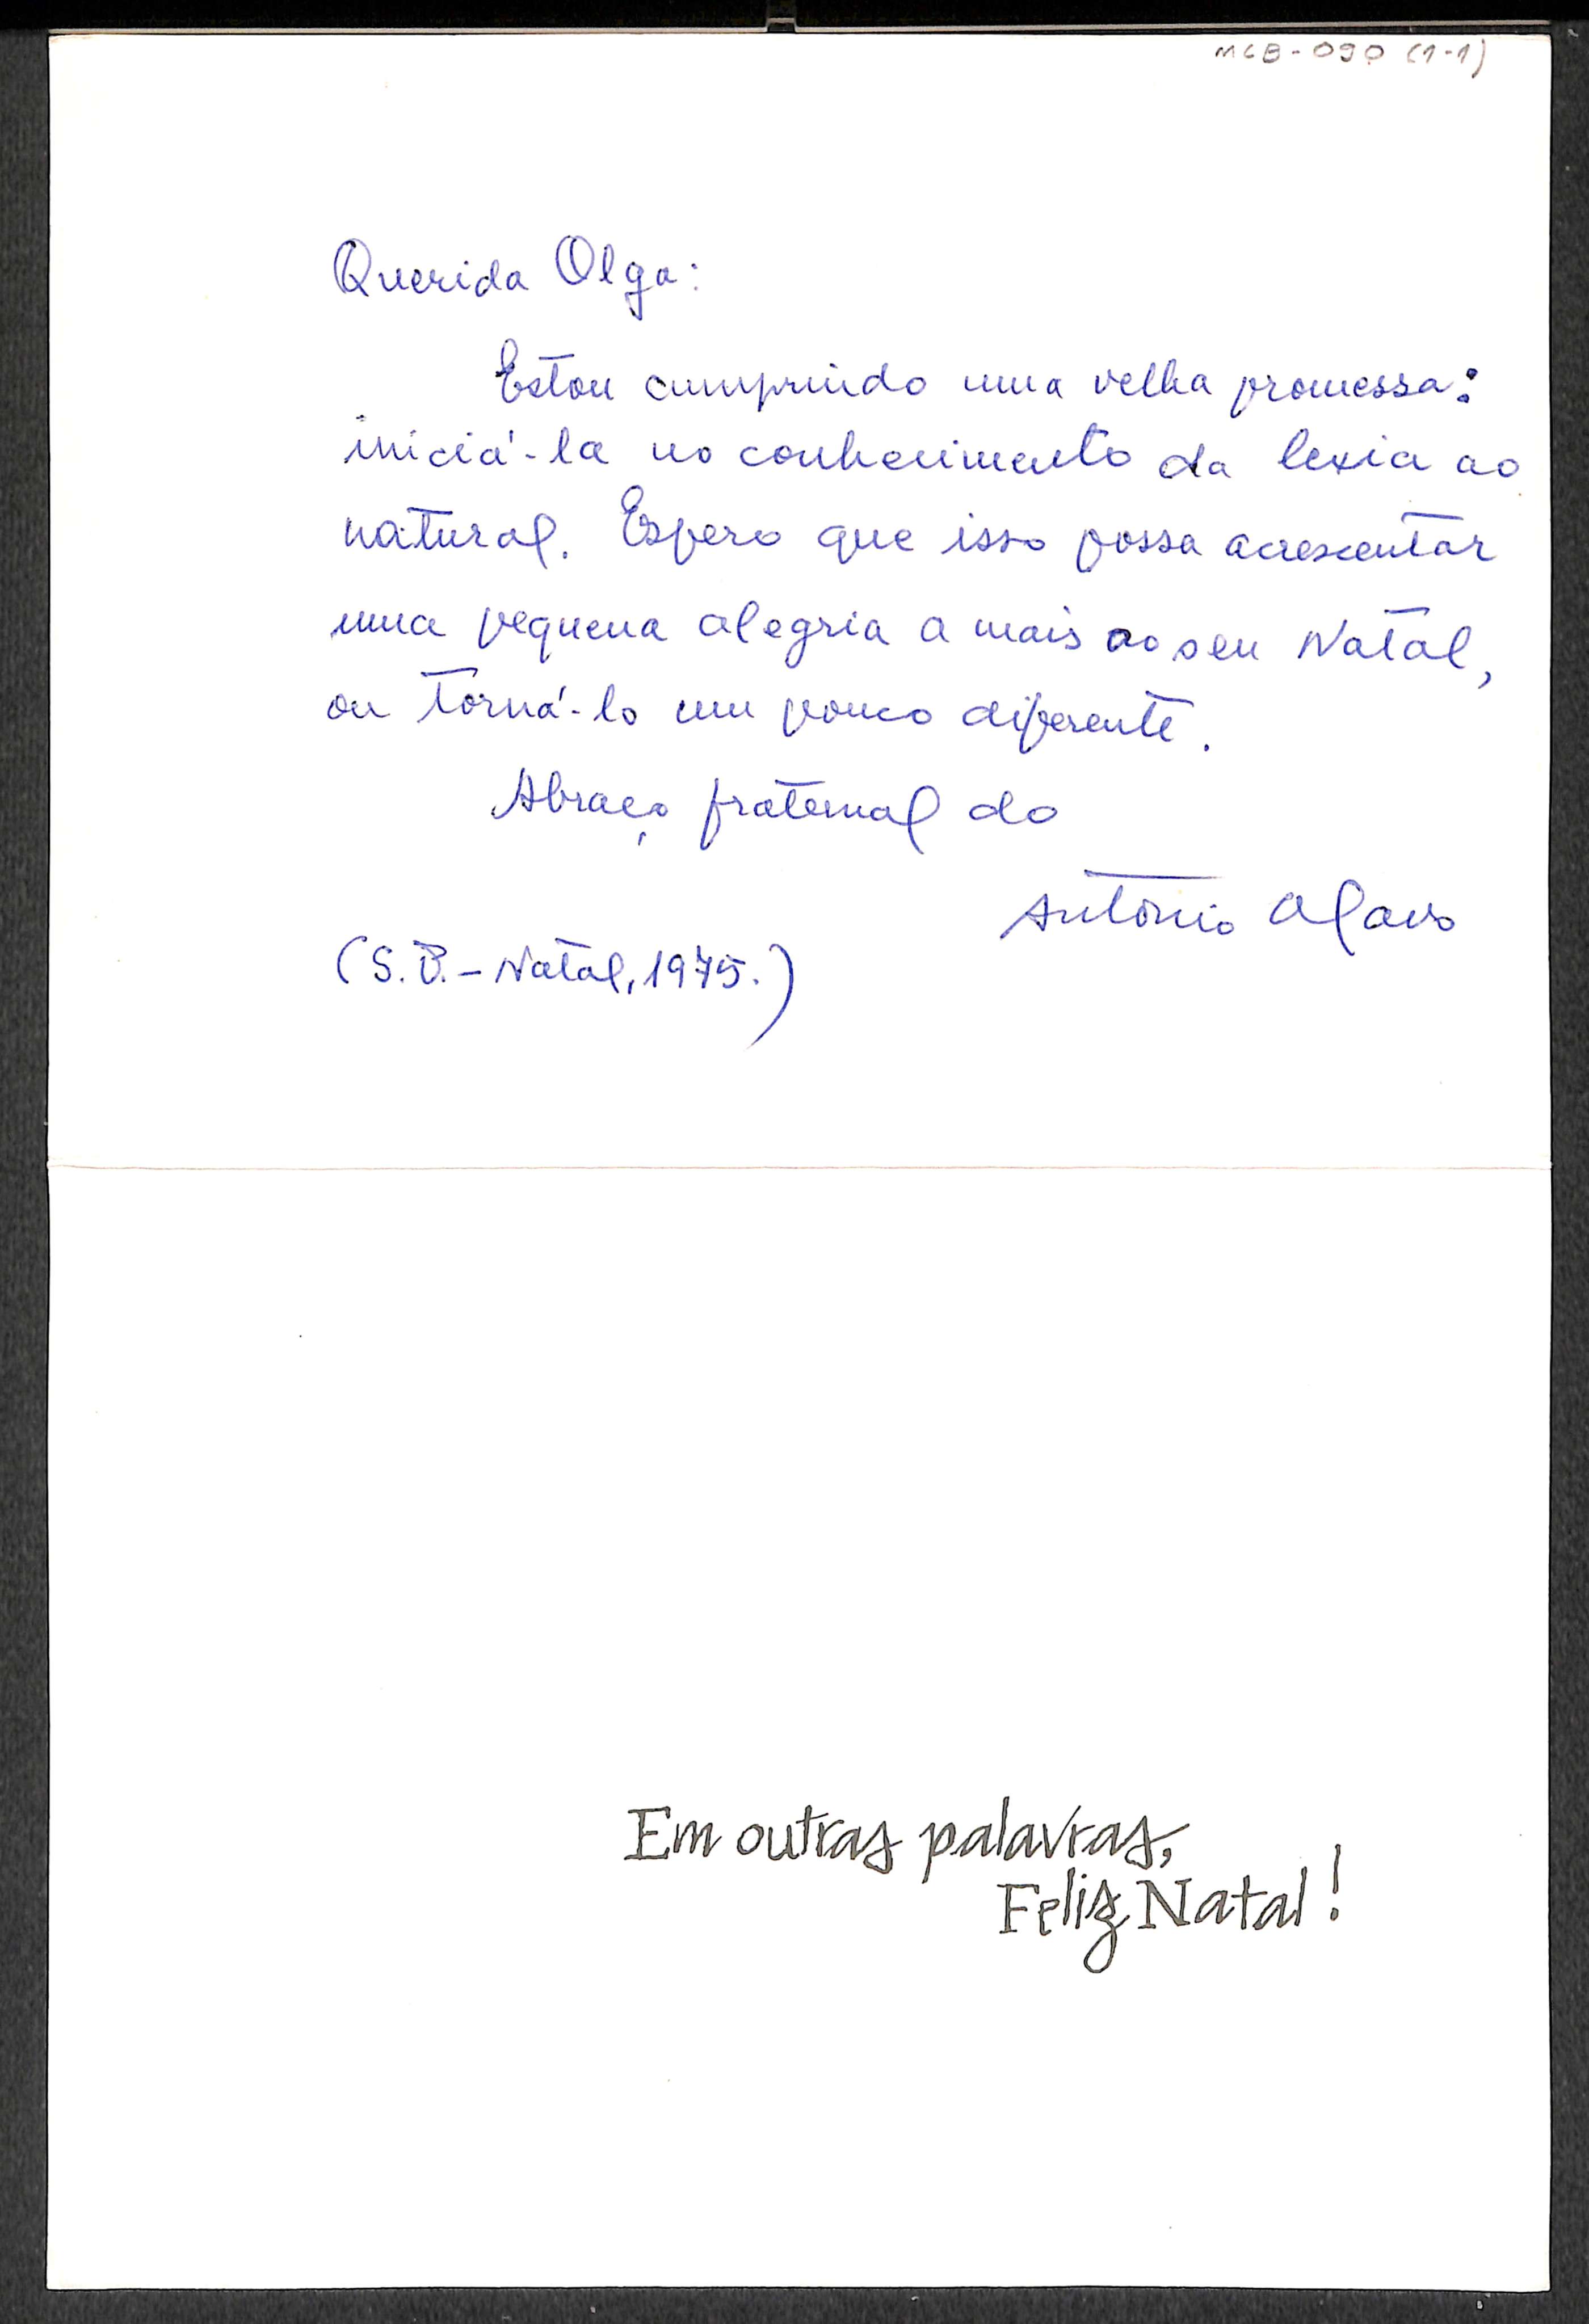 MCB-090 (1-1)
Querida Olga:
Estou cumprindo uma velha promessa:
iniciá-la no conhecimento da lexia ao
natural. Espero que isso possa acrescentar
uma pequena alegria a mais ao seu Natal,
ou torná-lo um pouco diferente.
Abraço fraternal do
Antônio
(S.P. - Natal, 1975.)
Em outras palavras,
Feliz Natal!